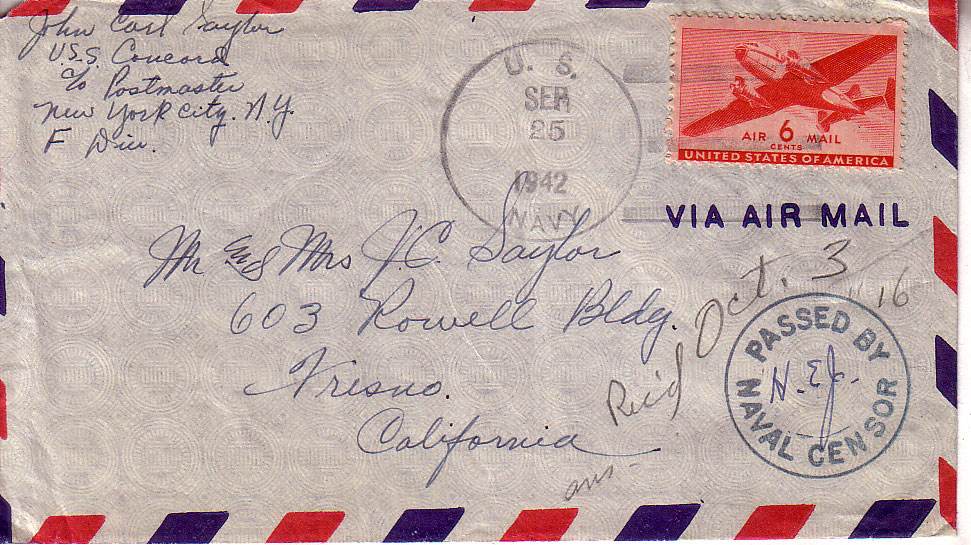 John Carl Saylor
U.S.S. Concord
c/o Postmaster
New York City. N.Y.
F Div.
U. S.
SEP
25
1942
NAVY
AIR 6 MAIL
CENTS
UNITED STATES OF AMERICA
VIA AIR MAIL
Mr and Mrs J.C. Saylor
603 Rowell Bldg.
Fresno.
California
Rec'd Oct. 3
" 16
ans-
PASSED BY
NAVAL CENSOR
H.E.J.